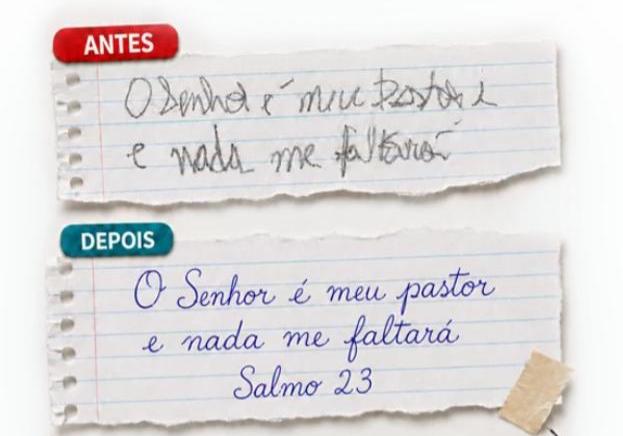 ANTES
O Senhor é meu Pastor e
e nada me faltará
DEPOIS
O Senhor é meu pastor
e nada me faltará
Salmo 23